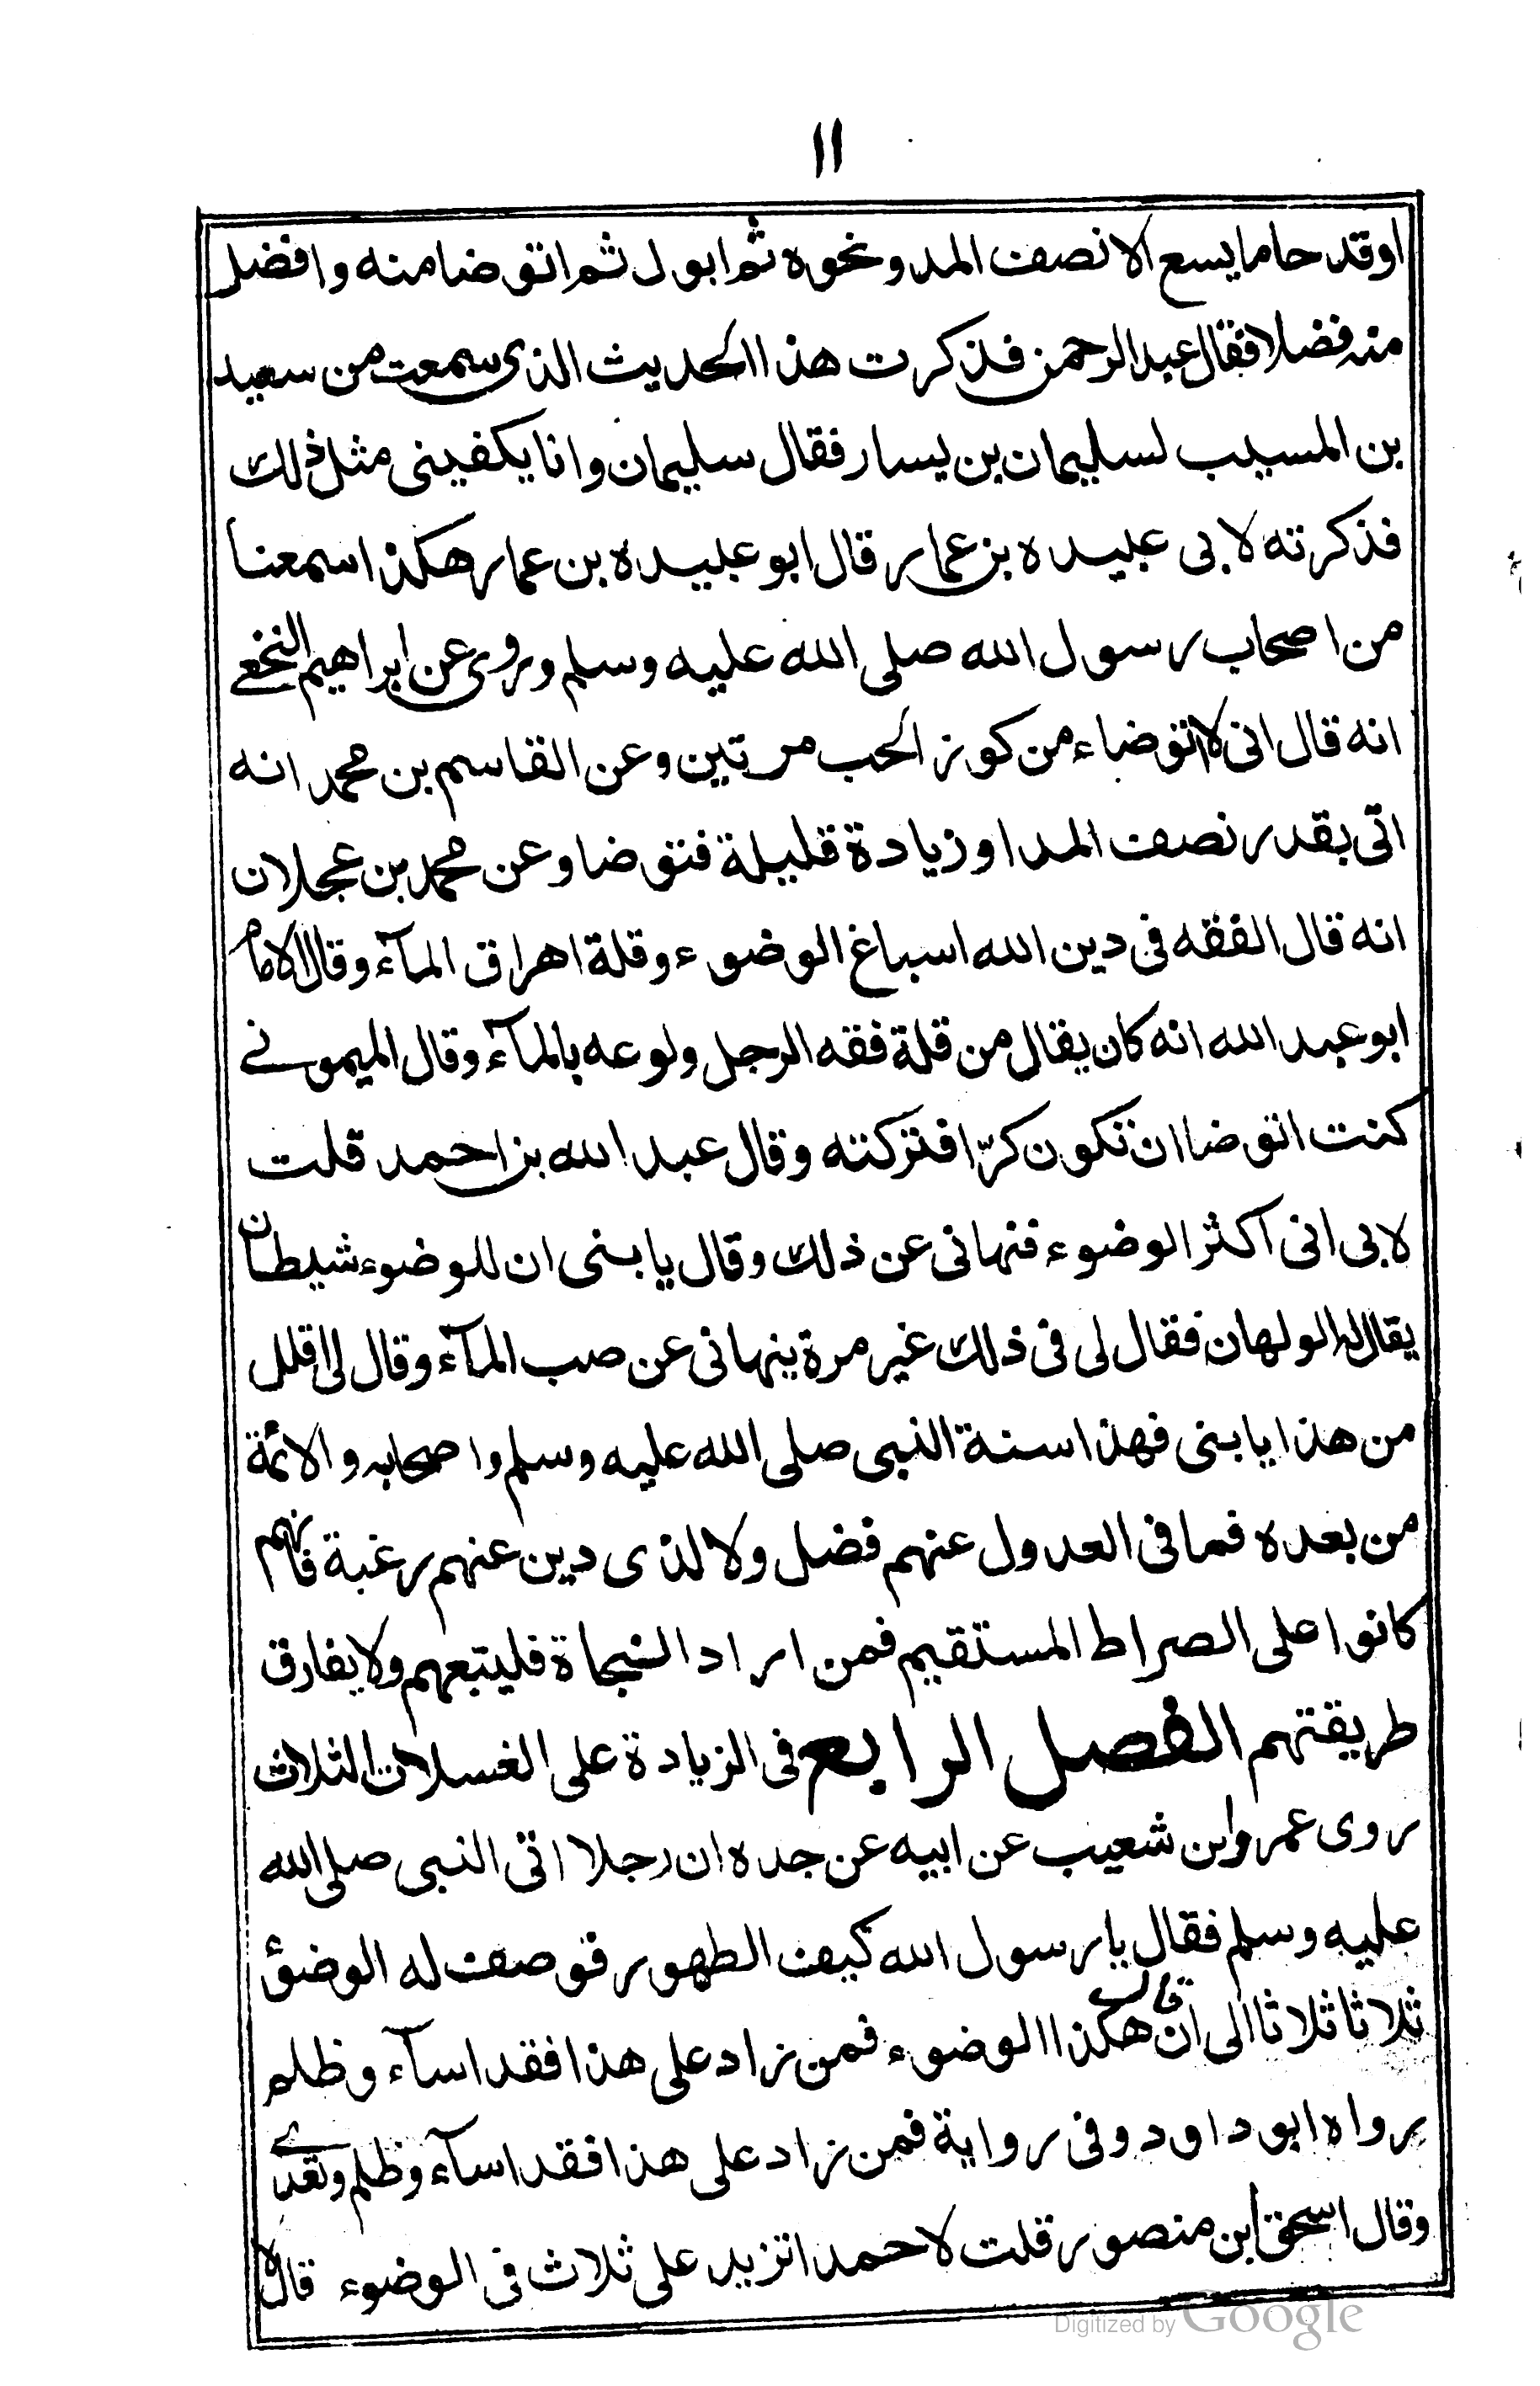 ١١
اوقدحاما يسع الا نصف المد ونحوه ثم ابول ثم اتوضا منه وافضل
منه فضلا فقال عبد الرحمن فذكرت هذا الحديث الذى سمعت من سعيد
بن المسيب لسليمان بن يسار فقال سليمان وانا يكفينى مثل ذلك
فذكرته لابى عبيده بن عمار قال ابو عبيده بن عمار هكذا سمعنا
من اصحاب رسول الله صلى الله عليه وسلم وروى عن ابراهيم النخعے
انه قال انى لاتوضاء من كوز الحب مرتين وعن القاسم بن محمد انه
اتى بقدر نصف المد او زيادة قليلة فتوضا وعن محمد بن عجلان
انه قال الفقه فى دين الله اسباغ الوضوء وقلة اهراق المآء وقال الامام
ابو عبد الله انه كان يقال من قلة فقه الرجل ولوعه بالمآء وقال الميمونے
كنت اتوضا ان تكون كرّا فتركته وقال عبد الله بن احمد قلت
لابى انى اكثر الوضوء فنهانى عن ذلك وقال يا بنى ان للوضوء شيطان
يقال له الولهان فقال لى فى ذلك غير مرة ينهانى عن صب المآء وقال لى اقلل
من هذا يا بنى فهذا سنة النبى صلى الله عليه وسلم واصحابه والائمة
من بعده فما فى العدول عنهم فضل ولا لذى دين عنهم رغبة فانهم
كانوا على الصراط المستقيم فمن اراد النجاة فليتبعهم ولا يفارق
طريقتهم الفصل الرابع فى الزيادة على الغسلات الثلاث
روى عمرو ابن شعيب عن ابيه عن جده ان رجلا اتى النبى صلى الله
عليه وسلم فقال يا رسول الله كيف الطهور فوصف له الوضؤ
ثلاثا ثلاثا الى ان قال هكذا الوضوء فمن زاد على هذا فقد اسآء وظلم
رواه ابو داود وفى رواية فمن زاد على هذا فقد اسآء وظلم وتعدے
وقال اسحق ابن منصور قلت لاحمد اتزيد على ثلاث فى الوضوء قال لا
Digitized by Google